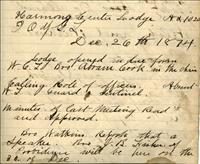 Harmony Center Lodge No 1020
I O of G. T.
Dec. 26th 1874.
Lodge opened in due form
W C T Bro Abram Cook in the chair
Calling Role of officers. Absent
W. S.
Minutes of last Meeting Read
and Approved.
Bro Watkins Reports that a
Speaker Bro J. B.
Providence will be here on the